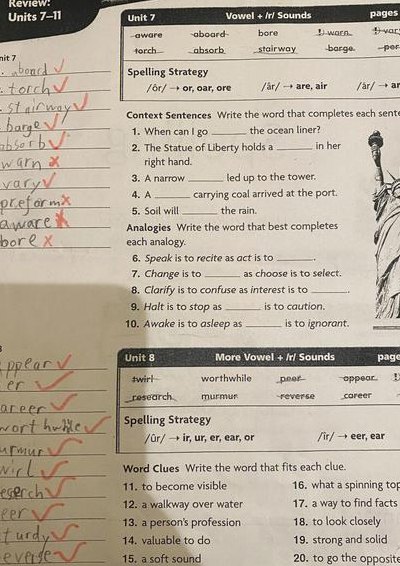 Review:
Units 7–11
Unit 7 Vowel + /r/ Sounds pages
aware aboard bore warn vary
torch absorb stairway barge
Spelling Strategy
/ôr/ → or, oar, ore /âr/ → are, air /är/ → ar
Context Sentences Write the word that completes each sente
1. When can I go ______ the ocean liner?
2. The Statue of Liberty holds a ______ in her
right hand.
3. A narrow ______ led up to the tower.
4. A ______ carrying coal arrived at the port.
5. Soil will ______ the rain.
Analogies Write the word that best completes
each analogy.
6. Speak is to recite as act is to ______.
7. Change is to ______ as choose is to select.
8. Clarify is to confuse as interest is to ______.
9. Halt is to stop as ______ is to caution.
10. Awake is to asleep as ______ is to ignorant.
Unit 8 More Vowel + /r/ Sounds page
twirl worthwhile peer appear
research murmur reverse career
Spelling Strategy
/ûr/ → ir, ur, er, ear, or /îr/ → eer, ear
Word Clues Write the word that fits each clue.
11. to become visible
12. a walkway over water
13. a person's profession
14. valuable to do
15. a soft sound
16. what a spinning top
17. a way to find facts
18. to look closely
19. strong and solid
20. to go the opposite
nit 7
aboard
torch
stairway
barge
absorb
warn
vary
preform
aware
bore
8
ppear
er
areer
worthwhile
urmur
wirl
eer
turdy
everse